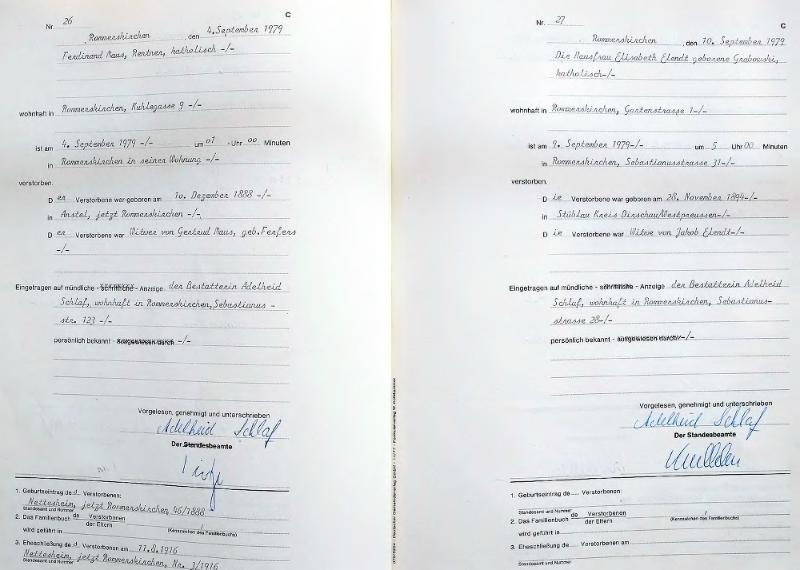 C
Nr. 26
Rommerskirchen den 4. September 1979
Ferdinand Maus, Rentner, katholisch -/-
wohnhaft in Rommerskirchen, Kuhlegasse 9 -/-
ist am 4. September 1979 -/- um 01 Uhr 00 Minuten
in Rommerskirchen in seiner Wohnung -/-
verstorben.
D er Verstorbene war geboren am 10. Dezember 1888 -/-
in Anstel, jetzt Rommerskirchen -/-
D er Verstorbene war Witwer von Gertrud Maus, geb. Ferfers
-/-
Eingetragen auf mündliche - schriftliche - Anzeige der Bestatterin Adelheid
Schlaf, wohnhaft in Rommerskirchen, Sebastianus -
str. 123 -/-
persönlich bekannt - ausgewiesen durch -/-
Vorgelesen, genehmigt und unterschrieben
Adelheid Schlaf
Der Standesbeamte
1. Geburtseintrag de s Verstorbenen:
Nettesheim, jetzt Rommerskirchen 46/1888
Standesamt und Nummer
2. Das Familienbuch de Verstorbenen
der Eltern
(Kennzeichen des Familienbuchs)
wird geführt in
3. Eheschließung de s Verstorbenen am 11.8.1916
Nettesheim, jetzt Rommerskirchen, Nr. 3/1916
Standesamt und Nummer
C
Nr. 27
Rommerskirchen, den 10. September 1979
Die Hausfrau Elisabeth Elendt geborene Grabowski,
katholisch-/-
wohnhaft in Rommerskirchen, Gartenstrasse 1-/-
ist am 9. September 1979-/- um 5 Uhr 00 Minuten
in Rommerskirchen, Sebastianusstrasse 31-/-
verstorben.
D ie Verstorbene war geboren am 28. November 1894-/-
in Stüblau Kreis Dirschau/Westpreussen-/-
D ie Verstorbene war Witwe von Jakob Elendt-/-
Eingetragen auf mündliche - schriftliche - Anzeige der Bestatterin Adelheid
Schlaf, wohnhaft in Rommerskirchen, Sebastianus-
strasse 28-/-
persönlich bekannt - ausgewiesen durch -/-
Vorgelesen, genehmigt und unterschrieben
Adelheid Schlaf
Der Standesbeamte
1. Geburtseintrag de Verstorbenen:
Standesamt und Nummer
2. Das Familienbuch de Verstorbenen
der Eltern
(Kennzeichen des Familienbuchs)
wird geführt in
3. Eheschließung de Verstorbenen am
Standesamt und Nummer